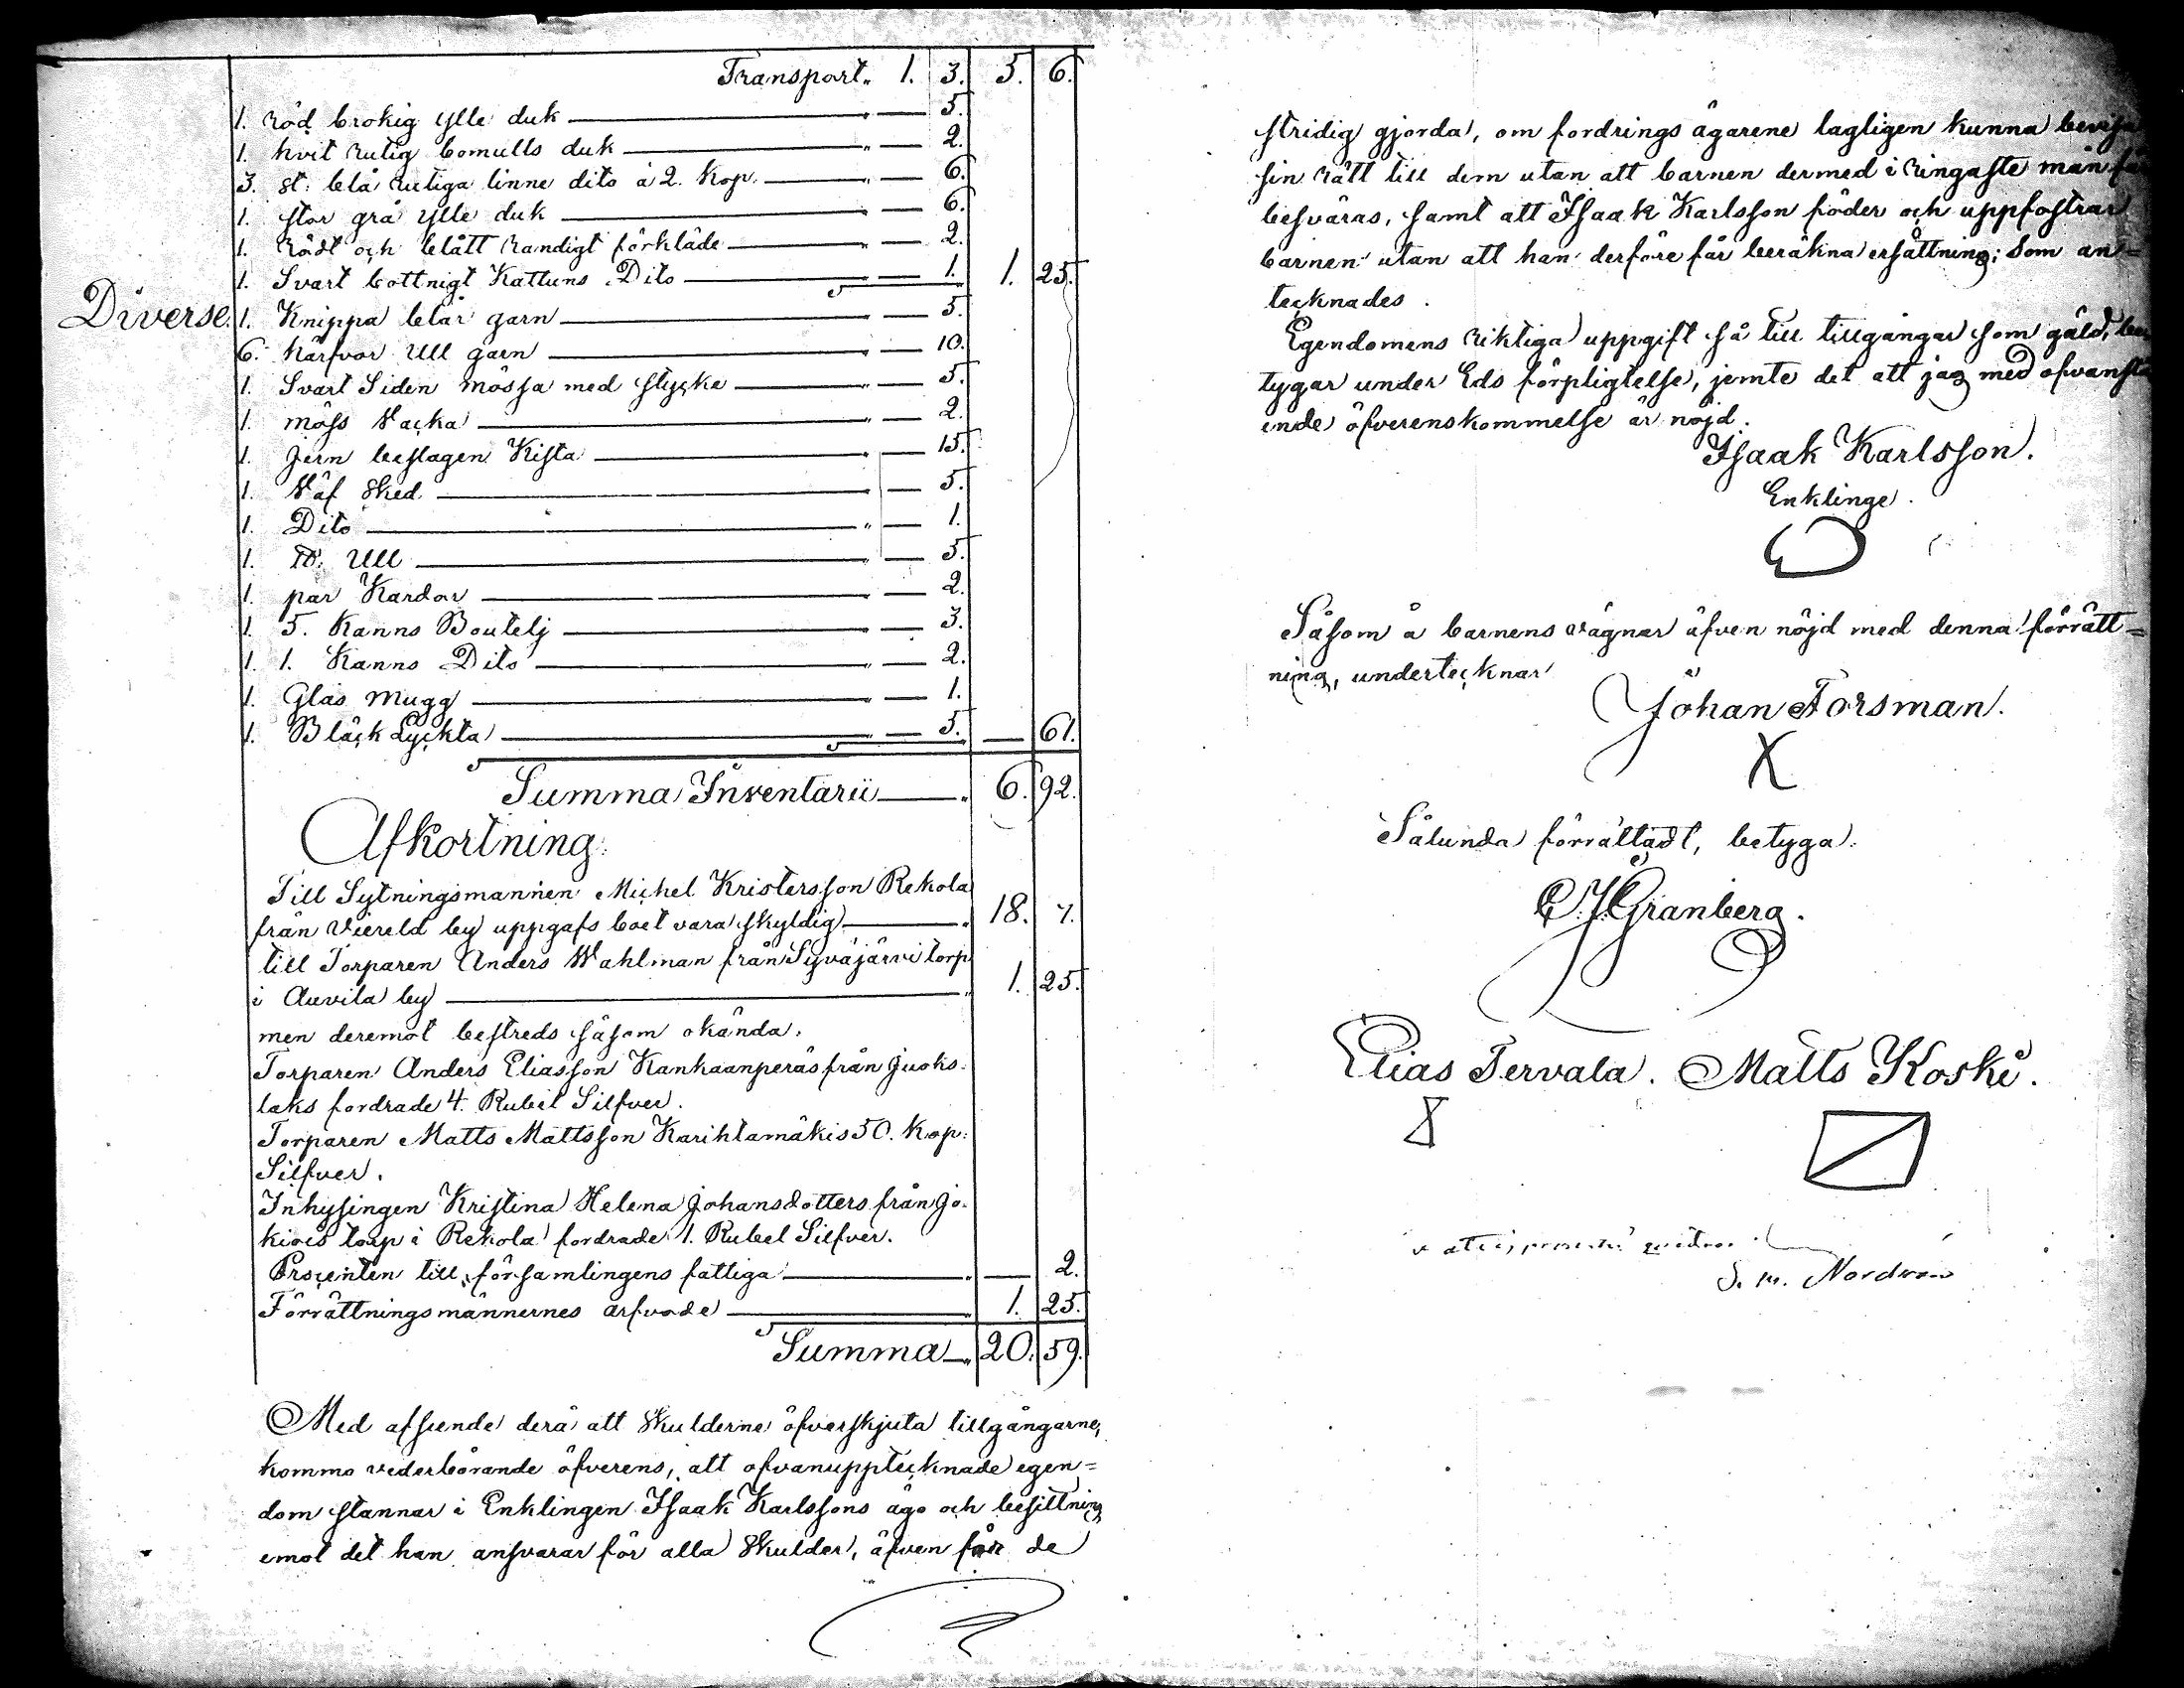 Transport „ 1. 3. 5. 6.
1. röd brokig ylle duk „ — 5.
1. hvit rutig bomulls duk „ — 2.
3. st: blå rutiga linne dito à 2. kop. „ — 6.
1. stor grå ylle duk „ — 6.
1. rödt och blått randigt förkläde „ — 2.
1. Svart bottnigt Kattuns Dito „ — 1. 1. 25.
Diverse. 1. Knippa blår garn „ — 5.
6. härfvor Ull garn „ — 10.
1. Svart Siden mössa med stycke „ — 5.
1. möss Vacka „ — 2.
1. Jern beslagen Kista „ — 15.
1. Väf Sked „ — 5.
1. Dito „ — 1.
1. ℔: Ull „ — 5.
1. par Kardor „ — 2.
1. 5. Kanns Boutelj „ — 3.
1. 1. Kanns Dito „ — 2.
1. Glas Mugg „ — 1.
1. Bläck Lyckta „ — 5. — 61.
Summa Inventarii „ 6. 92.
Afkortning:
Till Sytningsmannen Michel Kristersson Rekola
från Viereld by uppgafs boet vara skyldig „ 18. 7.
till Torparen Anders Wahlman från Syväjärvi torp
i Auvila by „ 1. 25.
men deremot bestreds såsom okända,
Torparen Anders Eliasson Kankaanperäs från Juoks-
laks fordrade 4. Rubel Silfver.
Torparen Matts Mattsson Karihtamäkis 50. kop:
Silfver.
Inhysingen Kristina Helena Johansdotters från Jo-
kiois torp i Rekola fordrade 1. Rubel Silfver.
Procenten till församlingens fattiga „ — 2.
Förrättningsmännernes arfvode „ 1. 25.
Summa „ 20. 59.
Med afseende derå att Skulderne öfverskjuta tillgångarne,
kommo vederbörande öfverens, att ofvanupptecknade egen=
dom stannar i Enklingen Isaak Karlssons ägo och besittning
emot det han ansvarar för alla Skulder, äfven för de
stridig gjorda, om fordrings ägarene lagligen kunna bevisa
sin rätt till dem utan att barnen dermed i ringaste mån få
besväras, samt att Isaak Karlsson föder och uppfostrar
barnen utan att han derföre får beräkna ersättning; Som an=
tecknades.
Egendomens riktiga uppgift så till tillgångar som gäld, be
tygar under Eds förpligtelse, jemte det att jag med ofvanstå
ende öfverenskommelse är nöjd.
Isaak Karlsson.
Enklinge.
Såsom å barnens vägnar äfven nöjd med denna förrätt=
ning, undertecknar
Johan Forsman.
X
Sålunda förrättadt, betyga:
C. J. Granberg.
Elias Tervala. Matts Koski.
S. M. Nordman